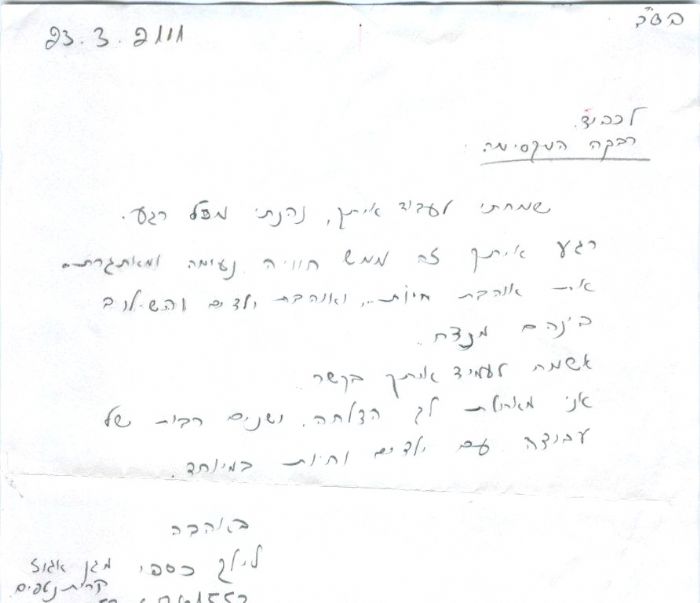 בס"ד
23.3.2011
לכבוד
רבקה המקסימה.
שמחתי לעבוד איתך, נהנתי מכל רגע.
רגע איתך זה ממש חוויה נעימה ומאתגרת..
את אוהבת חיות.., ואוהבת ילדים והשילוב
בינהם מנצח.
אשמח לעמוד איתך בקשר
אני מאחלת לך הצלחה, ושנים רבות של
עבודה עם ילדים וחיות במיוחד.
באהבה
לילך כספי מגן אגוז
קרית